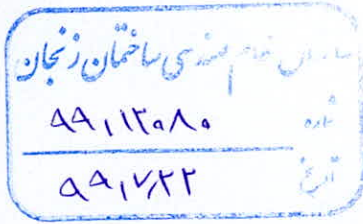 سازمان نظام مهندسی ساختمان زنجان
شماره ۹۹,۱۲۰۸۰
تاریخ ۹۹,۷,۲۲